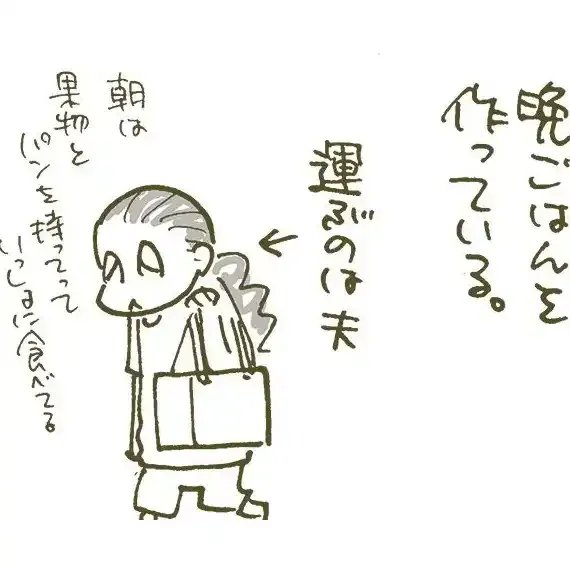 晩ごはんを
作っている。
運ぶのは夫
朝は
果物と
パンを持ってって
いっしょに食べてる